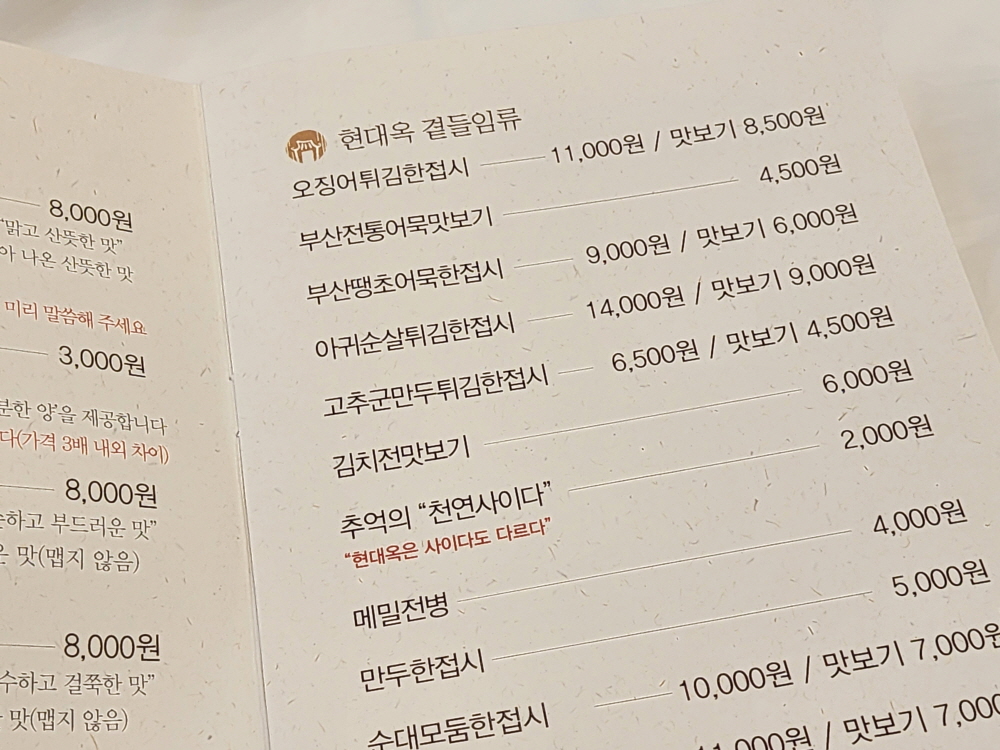 8,000원
“맑고 산뜻한 맛”
나온 산뜻한 맛
미리 말씀해 주세요
3,000원
양’을 제공합니다
(가격 3배 내외 차이)
8,000원
부드러운 맛”
맛(맵지 않음)
8,000원
걸쭉한 맛”
맛(맵지 않음)
현대옥 곁들임류
오징어튀김한접시 11,000원 / 맛보기 8,500원
부산전통어묵맛보기 4,500원
부산땡초어묵한접시 9,000원 / 맛보기 6,000원
아귀순살튀김한접시 14,000원 / 맛보기 9,000원
고추군만두튀김한접시 6,500원 / 맛보기 4,500원
김치전맛보기 6,000원
추억의 “천연사이다” 2,000원
“현대옥은 사이다도 다르다”
메밀전병 4,000원
만두한접시 5,000원
순대모둠한접시 10,000원 / 맛보기 7,000원
11,000원 / 맛보기 7,00